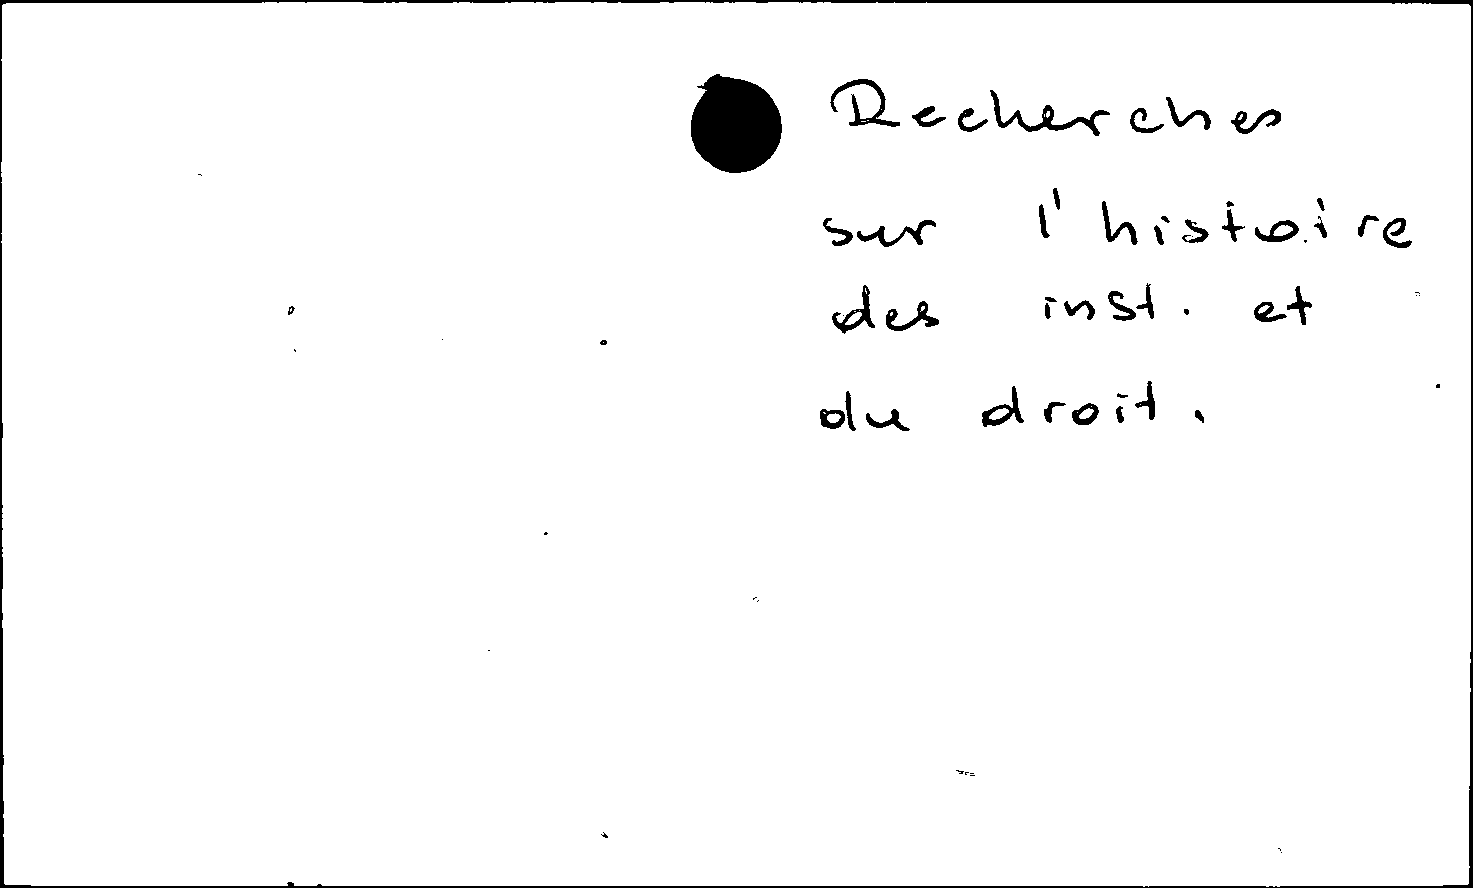 Recherches
sur l'histoire
des inst. et
du droit.